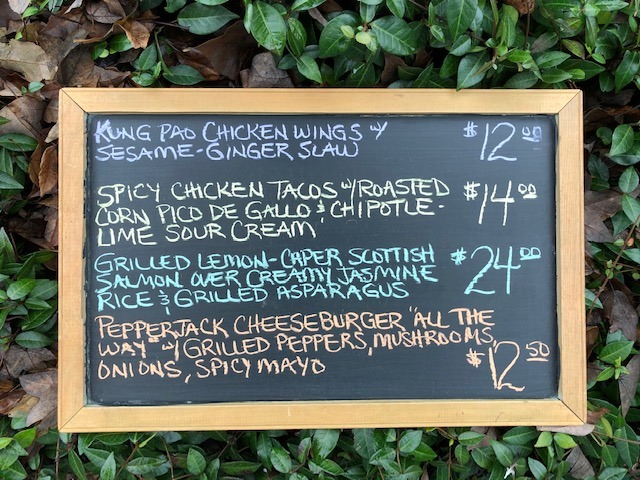 KUNG PAO CHICKEN WINGS w/ $12.00
SESAME-GINGER SLAW
SPICY CHICKEN TACOS w/ROASTED $14.00
CORN PICO DE GALLO & CHIPOTLE-
LIME SOUR CREAM
GRILLED LEMON-CAPER SCOTTISH $24.00
SALMON OVER CREAMY JASMINE
RICE & GRILLED ASPARAGUS
PEPPERJACK CHEESEBURGER "ALL THE
WAY" w/ GRILLED PEPPERS, MUSHROOMS,
ONIONS, SPICY MAYO $12.50